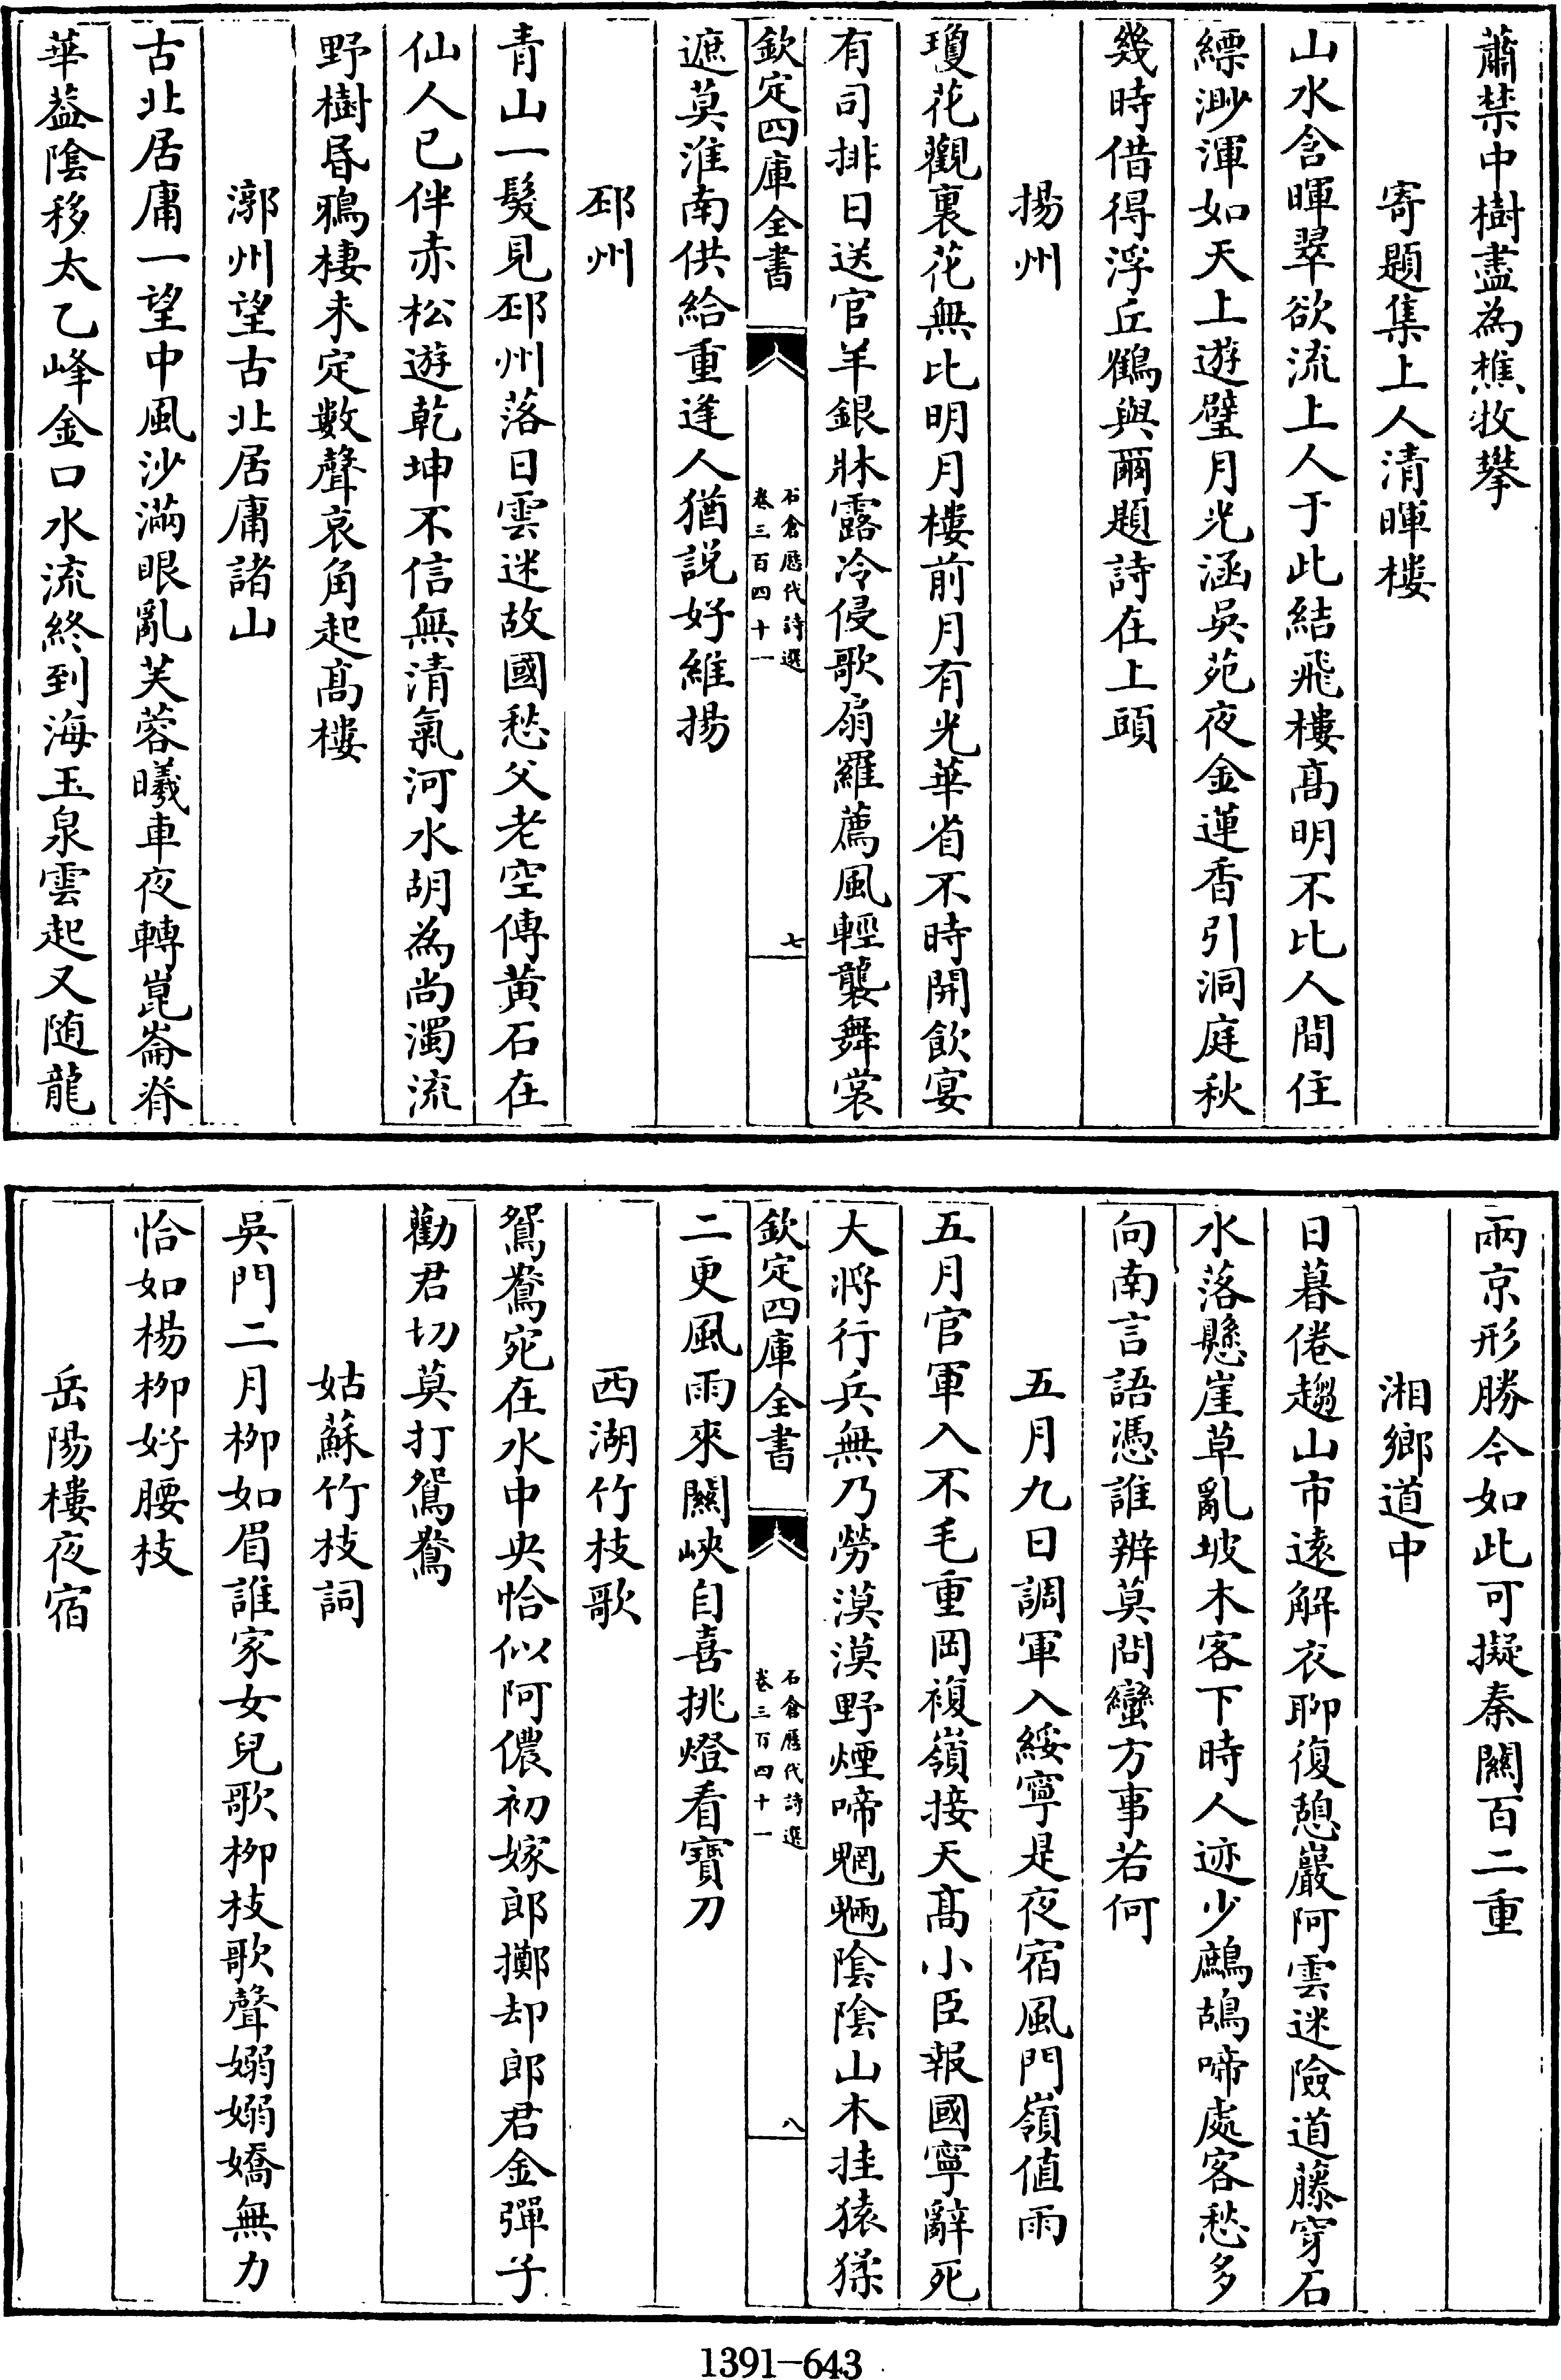 蕭禁中樹盡為樵牧攀
寄題集上人清暉樓
山水含暉翠欲流上人于此結飛樓髙明不比人間住
縹渺渾如天上遊璧月光涵吳苑夜金蓮香引洞庭秋
幾時借得浮丘鶴與爾題詩在上頭
揚州
瓊花觀裏花無比明月樓前月有光華省不時開飲宴
有司排日送官羊銀牀露冷侵歌扇羅薦風輕襲舞裳
欽定四庫全書
石倉歷代詩選
卷三百四十一
七
遮莫淮南供給重逢人猶説好維揚
邳州
青山一髮見邳州落日雲迷故國愁父老空傳黄石在
仙人已伴赤松遊乾坤不信無清氣河水胡為尚濁流
野樹昬鴉棲未定數聲哀角起髙樓
漷州望古北居庸諸山
古北居庸一望中風沙滿眼亂芙蓉曦車夜轉崑崙脊
華葢陰移太乙峰金口水流終到海玉泉雲起又随龍
兩京形勝今如此可擬秦關百二重
湘鄉道中
日暮倦趨山市遠解衣聊復憩巖阿雲迷險道藤穿石
水落懸崖草亂坡木客下時人迹少鷓鴣啼處客愁多
向南言語憑誰辨莫問蠻方事若何
五月九日調軍入綏寧是夜宿風門嶺值雨
五月官軍入不毛重岡複嶺接天髙小臣報國寧辭死
大將行兵無乃勞漠漠野煙啼魍魎陰陰山木挂猿猱
欽定四庫全書
石倉歷代詩選
卷三百四十一
八
二更風雨來關峽自喜挑燈看寶刀
西湖竹枝歌
鴛鴦宛在水中央恰似阿儂初嫁郎擲却郎君金彈子
勸君切莫打鴛鴦
姑蘇竹枝詞
吳門二月柳如眉誰家女兒歌柳枝歌聲嫋嫋嬌無力
恰如楊柳好腰枝
岳陽樓夜宿
1391-643